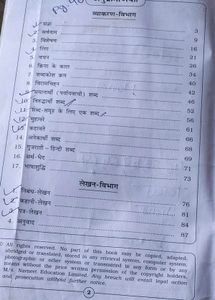 Pg-40
अनुक्रमणिका
व्याकरण-विभाग
1. संज्ञा 3
2. सर्वनाम 6
3. विशेषण 9
4. लिंग 16
5. वचन 21
6. क्रिया के काल 26
7. शब्दकोश क्रम 34
8. विरामचिह्न 40
9. समानार्थी (पर्यायवाची) शब्द 42
10. विरुद्धार्थी शब्द 46
11. शब्द-समूह के लिए एक शब्द 52
12. मुहावरे 56
13. कहावतें 61
14. अनेकार्थी शब्द 66
15. गुजराती - हिन्दी शब्द 68
16. अर्थ-भेद 71
17. भाषाशुद्धि 73
लेखन-विभाग
1. निबंध-लेखन 76
2. कहानी-लेखन 81
3. पत्र-लेखन 84
4. अनुवाद 87
All rights reserved. No part of this book may be copied, adapted,
abridged or translated, stored in any retrieval system, computer system,
photographic or other system or transmitted in any form or by any
means without the prior written permission of the copyright holders,
M/s. Navneet Education Limited. Any breach will entail legal action
and prosecution without further notice.
2